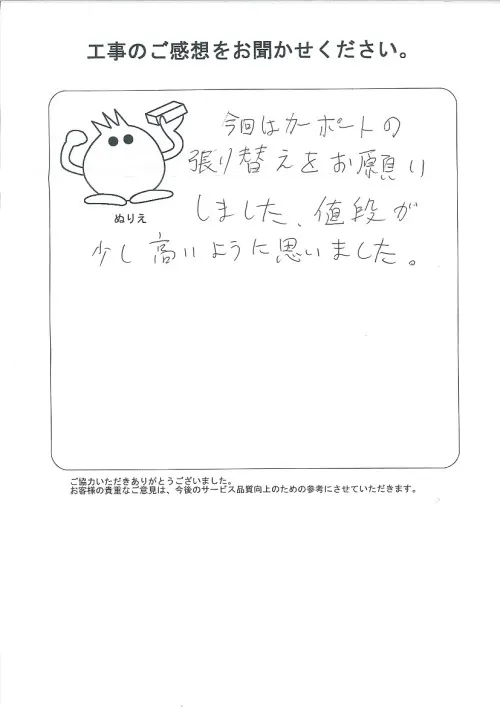 工事のご感想をお聞かせください。
今回はカーポートの
張り替えをお願い
しました、値段が
少し高いように思いました。
ぬりえ
ご協力いただきありがとうございました。
お客様の貴重なご意見は、今後のサービス品質向上のための参考にさせていただきます。